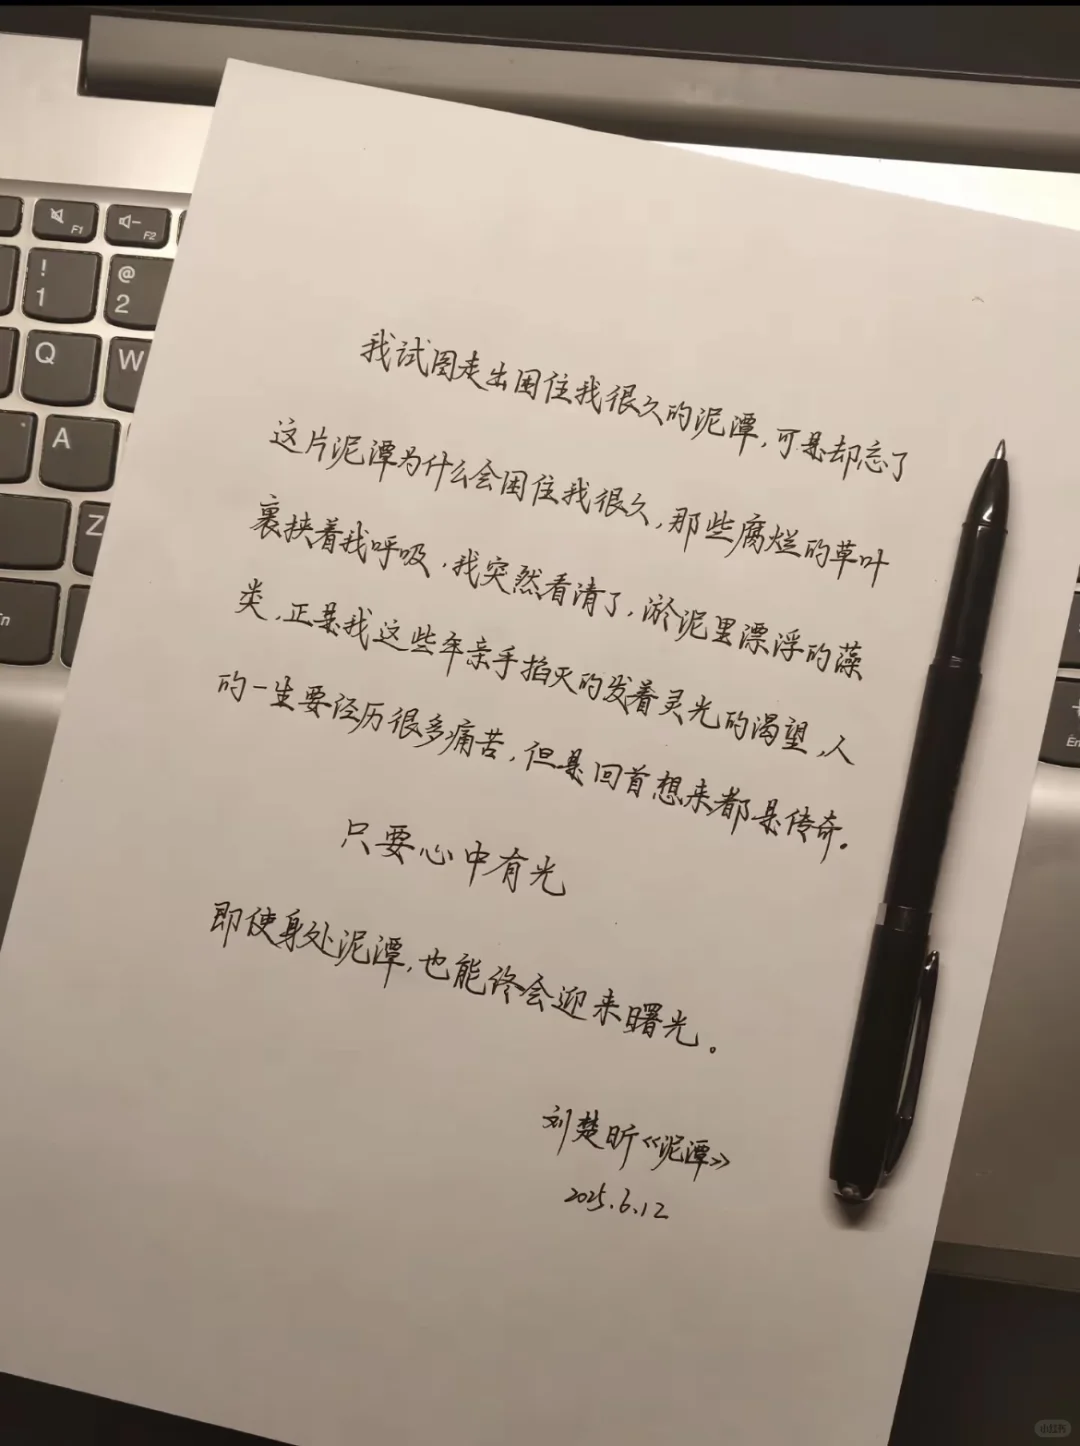 我试图走出困住我很久的泥潭，可是却忘了
这片泥潭为什么会困住我很久，那些腐烂的草叶
裹挟着我呼吸，我突然看清了，淤泥里漂浮的藻
类，正是我这些年亲手掐灭的发着灵光的渴望，人
的一生要经历很多痛苦，但是回首想来都是传奇。
只要心中有光
即使身处泥潭，也能终会迎来曙光。
刘楚昕《泥潭》
2025.6.12
F1
F2
!
1
@
2
Q
W
A
Z
小红书